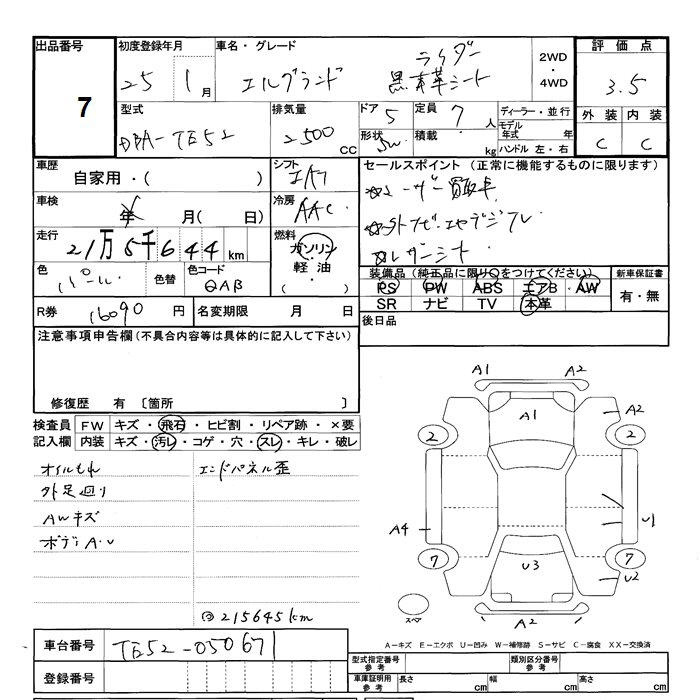 出品番号 初度登録年月 車名・グレード 評価点
7
25 1月 エルグランド ライダー
黒本革シート
2WD・4WD
3.5
型式 排気量 ドア 5 定員 7人 ディーラー・並行 外装 内装
DBA-TE52 2500cc 形状 SW 積載 kg モデル年式 年 C C
ハンドル 左・右
車歴 シフト セールスポイント (正常に機能するものに限ります)
自家用・( )
車検 冷房 AAC
年 月( 日)
走行 21万5千644km 燃料 ガソリン・軽油・
レザーシート
色 パール 色替 色コード QAB
装備品 (純正品に限り○をつけてください) 新車保証書
PS PW ABS エアB AW 有・無
SR ナビ TV 本革
R券 16090円 名変期限 月 日
後日品
注意事項申告欄(不具合内容等は具体的に記入して下さい)
修復歴 有 〔箇所 〕
検査員記入欄 FW キズ・飛石・ヒビ割・リペア跡・×要
内装 キズ・汚レ・コゲ・穴・スレ・キレ・破レ
オイルもれ エンドパネル歪
外足廻り
AWキズ
ボディA.U
215645km
A1 A2
A1 A2
2 2
A4 U1
7 7
U3 U2
スペア A2
A-キズ E-エクボ U-凹み W-補修跡 S-サビ C-腐食 XX-交換済
車台番号 TE52-050671
型式指定番号参考 類別区分番号参考
登録番号
車庫証明用参考 長さ cm 幅 cm 高さ cm